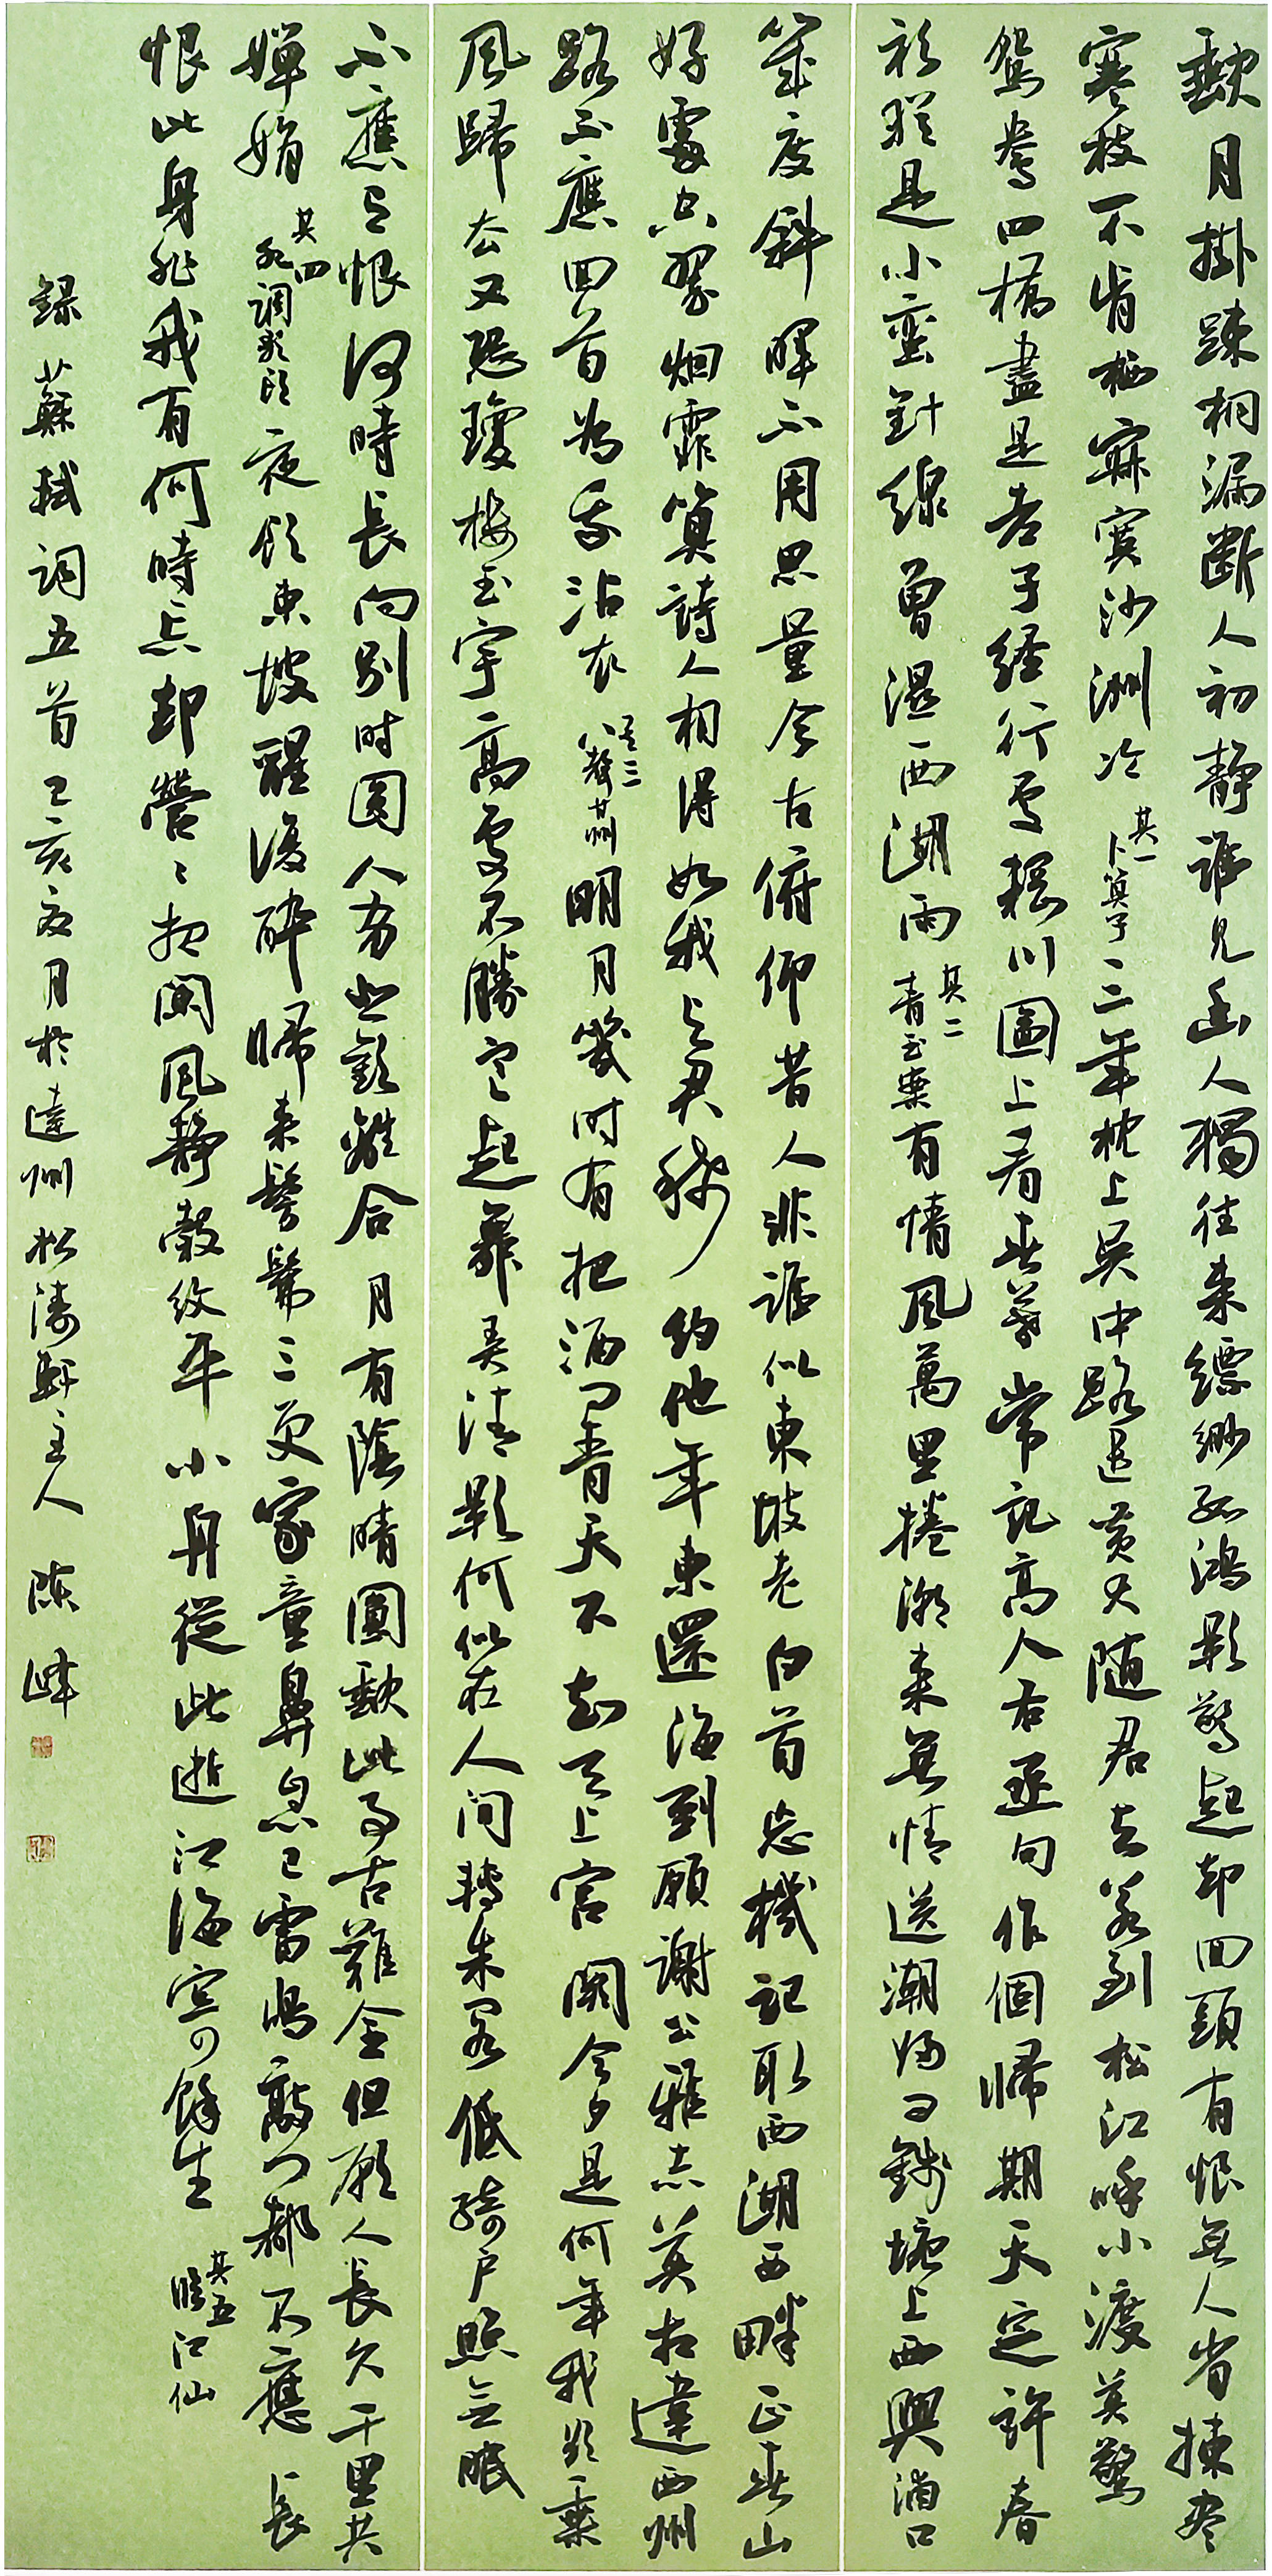 缺月掛疎桐漏斷人初靜誰見幽人獨往来縹緲孤鴻影驚起却回頭有恨無人省揀尽
寒枝不肯栖寂寞沙洲冷 其一 卜算子 三年枕上吴中路遣黄犬随君去若到松江呼小渡莫驚
鴛鴦四橋盡是老子経行處輞川圖上看春暮常記高人右丞句作個歸期天定許春
衫猶是小蠻針線曾濕西湖雨 其二 青玉案 有情風萬里捲潮来無情送潮歸問錢塘上西興浦口
幾度斜暉不用思量今古俯仰昔人非誰似東坡老白首忘機記取西湖西畔正春山
好處空翠烟霏算詩人相得如我與君稀約他年東還海到願謝公雅志莫相違西州
路不應回首為我沾衣 其三 八聲甘州 明月幾时有把酒問青天不知天上宮闕今夕是何年我欲乘
風歸去又恐瓊樓玉宇高處不勝寒起舞弄清影何似在人间轉朱閣低綺户照無眠
不應有恨何時長向別时圓人有悲歡離合月有陰晴圓缺此事古難全但願人長久千里共
嬋娟 其四 水調歌頭 夜飲東坡醒復醉歸来髣髴三更家童鼻息已雷鳴敲门都不應長
恨此身非我有何時忘却營〻夜闌風靜縠紋平小舟從此逝江海寄餘生 其五 臨江仙
録蘇軾詞五首己亥夏月於達州松濤軒主人 陳峰